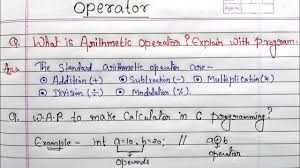 Operator
Q. What is Arithmetic Operator? Explain with program.
Ans → The Standard arithmetic operator are -
• Addition (+) • Subtraction (-) • Multiplication (*)
• Division (÷) • Modulation (%).
Q. W.A.P. to make Calculator in C programming?
Example - int a=10, b=20; // a+b
operands operator